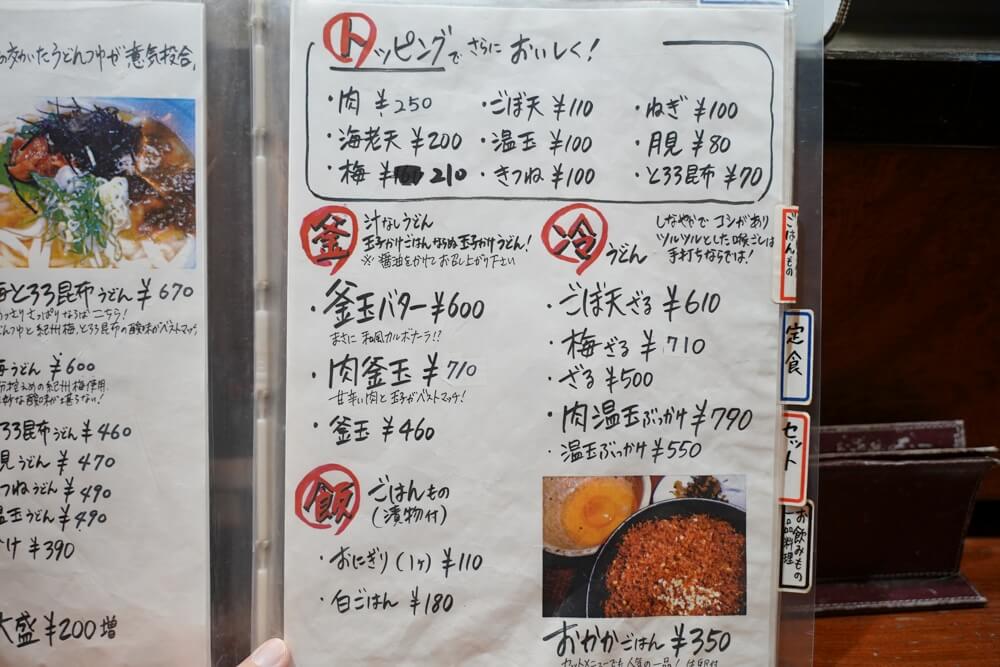 かいたうどんつゆが意気投合。
梅とろろ昆布うどん ¥670
あっさりさっぱりならばこちら!
うどんつゆと紀州梅、とろろ昆布の酸味がベストマッチ
¥600
控えめの紀州梅使用
ろろ昆布うどん ¥460
見うどん ¥470
つねうどん ¥490
温玉うどん ¥490
け ¥390
大盛 ¥200増
トッピングでさらにおいしく!
・肉 ¥250 ・ごぼ天 ¥110 ・ねぎ ¥100
・海老天 ¥200 ・温玉 ¥100 ・月見 ¥80
・梅 ¥210 ・きつね ¥100 ・とろろ昆布 ¥70
釜 汁なしうどん
玉子かけごはんならぬ玉子かけうどん!
※醤油をかけてお召し上がり下さい
・釜玉バター ¥600
まさに和風カルボナーラ!?
・肉釜玉 ¥710
甘辛い肉と玉子がベストマッチ!
・釜玉 ¥460
飯 ごはんもの
(漬物付)
・おにぎり(1ヶ) ¥110
・白ごはん ¥180
冷うどん
しなやかでコシがあり
ツルツルとした喉ごしは
手打ちならでは!
・ごぼ天ざる ¥610
・梅ざる ¥710
・ざる ¥500
・肉温玉ぶっかけ ¥790
・温玉ぶっかけ ¥550
おかかごはん ¥350
セットメニューでも人気の一品!
ごはんもの
定食
セット
お飲みもの
一品料理